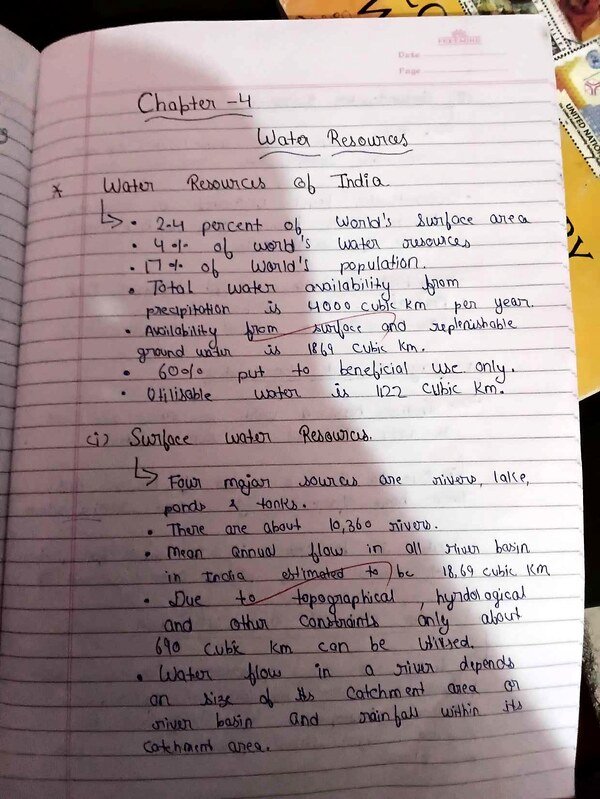 Date
Page
Chapter -4
Water Resources
* Water Resources of India
• 2.4 percent of World's Surface area
• 4% of world's water resources
• 17% of World's population.
• Total water availability from
precipitation is 4000 cubic km per year.
• Availability from surface and replenishable
ground water is 1869 cubic km.
• 60% put to beneficial use only.
• Utilisable water is 1122 cubic km.
(i) Surface water Resources.
Four major sources are rivers, lake,
ponds & tanks.
• There are about 10,360 rivers.
• Mean annual flow in all river basin
in India estimated to be 18,69 cubic km
• Due to topographical, hyrdological
and other constraints only about
690 cubic km can be utilised.
• Water flow in a river depends
on size of its catchment area or
river basin and rainfall within its
catchment area.
UNITED NATIO